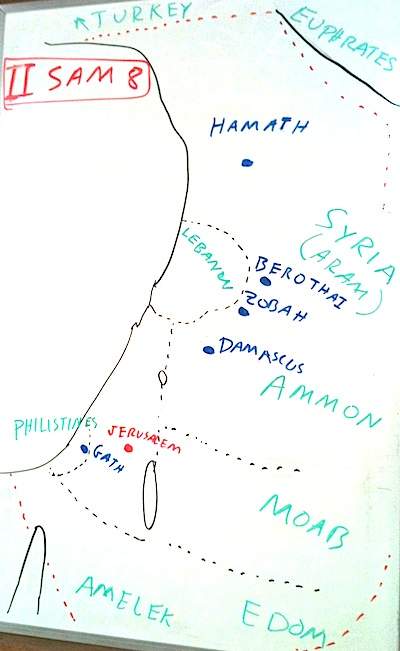 TURKEY
EUPHRATES
II SAM 8
HAMATH
SYRIA
(ARAM)
LEBANON
BEROTHAI
ZOBAH
DAMASCUS
AMMON
PHILISTINES
JERUSALEM
GATH
MOAB
AMELEK
EDOM